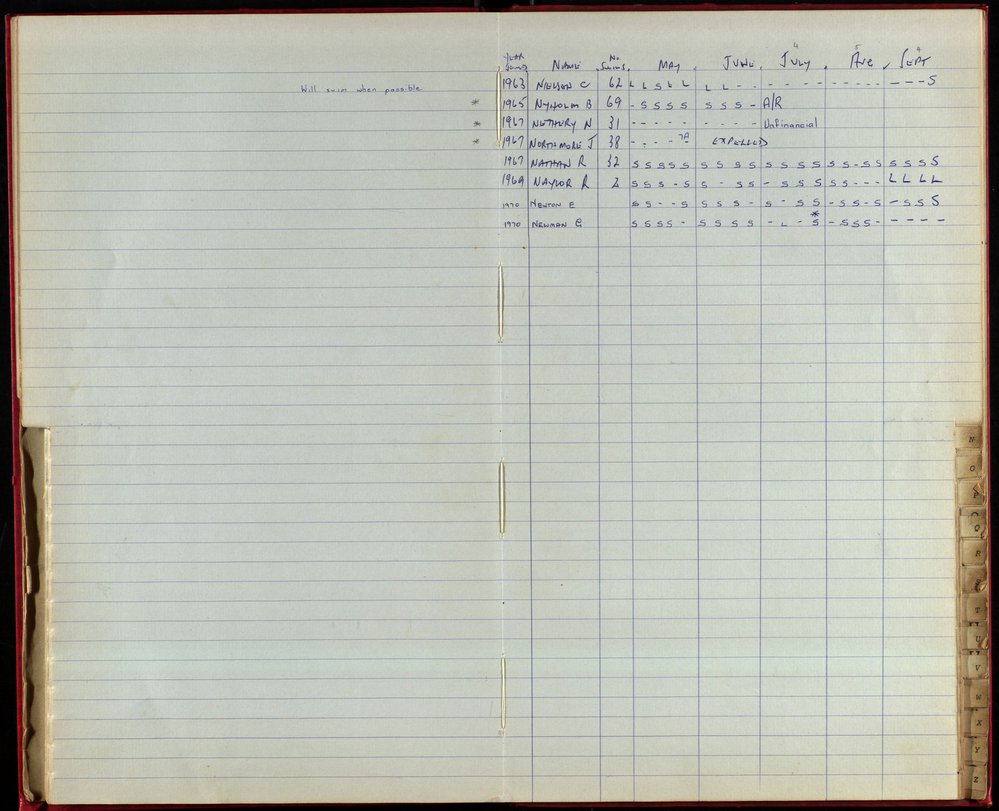 4 5 4
YEAR NAME No SWIMS MAY JUNE JULY AUG SEPT
Will swim when possible 1963 NIELSON C 62 L L S L L L L - - - - - - - - - - - - - S
* 1965 NYHOLM B 69 - S S S S S S S - A/R
* 1967 NETHERY N 31 - - - - - - - - - Unfinancial
* 1967 NORTHMORE J 38 - - - - EXPELLED
1967 NATHAN R 32 S S S S S S S S S S S S S S S - S S S S S S
1969 NAYLOR R 2 S S S - S S - S S - S S S S S - - - L L L L
1970 NEWTON E S S - - S S S S - S - S S - S S - S - S S S
*
1970 NEWMAN G S S S S - S S S S - L - S - S S S - - - - -
N
O
P
Q
R
T
U
V
W
X
Y
Z